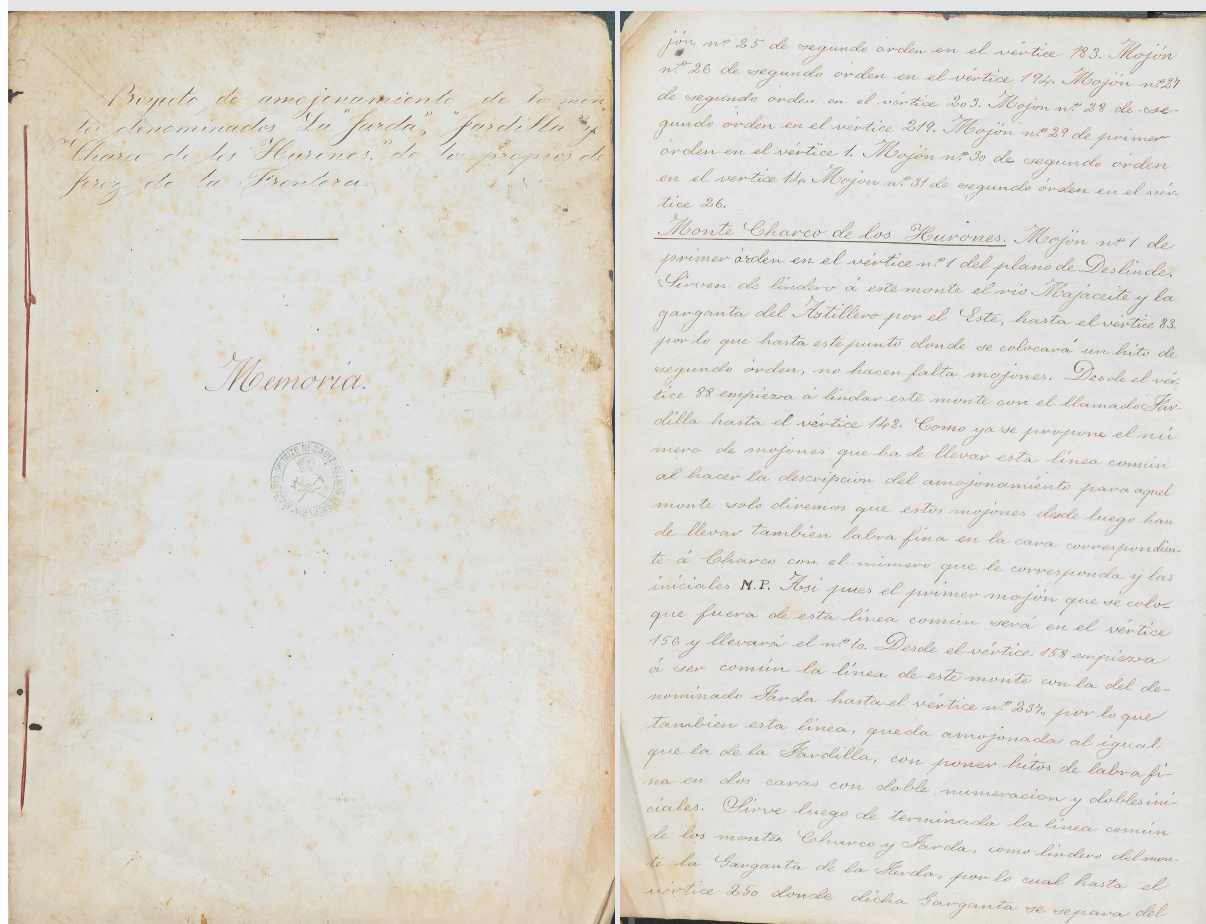 Proyecto de amojonamiento de los mon-
tes denominados "La Jarda", "Jardilla y
"Charco de los Hurones," de los propios de
Jerez de la Frontera
Memoria.
jón nº 25 de segundo órden en el vértice 183. Mojón
n.º 26 de segundo órden en el vértice 194. Mojón nº 27
de segundo órden en el vértice 203. Mojón n.º 28 de se-
gundo órden en el vértice 219. Mojón n.º 29 de primer
orden en el vértice 1. Mojón n.º 30 de segundo orden
en el vertice 14. Mojon n.º 31 de segundo órden en el vér-
tice 26.
Monte Charco de los Hurones. Mojón nº 1 de
primer órden en el vértice n.º 1 del plano de Deslinde.
Sirven de lindero á este monte el rio Majaceite y la
garganta del Astillero por el Este, hasta el vértice 83.
por lo que hasta este punto donde se colocará un hito de
segundo órden, no hacen falta mojones. Desde el vér-
tice 88 empieza á lindar este monte con el llamado Jar-
dilla hasta el vértice 148. Como ya se propone el nú
mero de mojones que ha de llevar esta línea común
al hacer la descripcion del amojonamiento para aquel
monte solo diremos que estos mojones desde luego han
de llevar tambien labra fina en la cara correspondien-
te á Charco con el número que le corresponda y las
iniciales M.P. Asi pues el primer mojón que se colo-
que fuera de esta línea común será en el vértice
156 y llevará el n.º 10. Desde el vértice 158 empieza
á ser común la línea de este monte con la del de-
nominado Jarda hasta el vértice n.º 237, por lo que
tambien esta línea, queda amojonada al igual
que la de la Jardilla, con poner hitos de labra fi-
na en dos caras con doble numeracion y dobles ini-
ciales. Sirve luego de terminada la línea común
de los montes Charco y Jarda, como lindero del mon-
te la Garganta de la Jarda, por lo cual hasta el
vértice 250 donde dicha Garganta se separa del